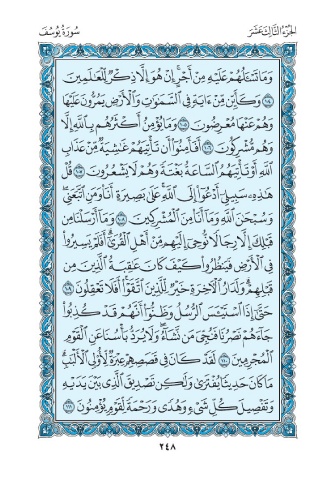 الجزء الثالث عشر
سورة يوسف
وَمَا تَسْـَٔلُهُمْ عَلَيْهِ مِنْ أَجْرٍ إِنْ هُوَ إِلَّا ذِكْرٌ لِّلْعَٰلَمِينَ
١٠٤ وَكَأَيِّن مِّنْ ءَايَةٍ فِى ٱلسَّمَٰوَٰتِ وَٱلْأَرْضِ يَمُرُّونَ عَلَيْهَا
وَهُمْ عَنْهَا مُعْرِضُونَ ١٠٥ وَمَا يُؤْمِنُ أَكْثَرُهُم بِٱللَّهِ إِلَّا
وَهُم مُّشْرِكُونَ ١٠٦ أَفَأَمِنُوٓا۟ أَن تَأْتِيَهُمْ غَٰشِيَةٌ مِّنْ عَذَابِ
ٱللَّهِ أَوْ تَأْتِيَهُمُ ٱلسَّاعَةُ بَغْتَةً وَهُمْ لَا يَشْعُرُونَ ١٠٧ قُلْ
هَٰذِهِۦ سَبِيلِىٓ أَدْعُوٓا۟ إِلَى ٱللَّهِ عَلَىٰ بَصِيرَةٍ أَنَا۠ وَمَنِ ٱتَّبَعَنِى
وَسُبْحَٰنَ ٱللَّهِ وَمَآ أَنَا۠ مِنَ ٱلْمُشْرِكِينَ ١٠٨ وَمَآ أَرْسَلْنَا مِن
قَبْلِكَ إِلَّا رِجَالًا نُّوحِىٓ إِلَيْهِم مِّنْ أَهْلِ ٱلْقُرَىٰٓ أَفَلَمْ يَسِيرُوا۟
فِى ٱلْأَرْضِ فَيَنظُرُوا۟ كَيْفَ كَانَ عَٰقِبَةُ ٱلَّذِينَ مِن
قَبْلِهِمْ وَلَدَارُ ٱلْءَاخِرَةِ خَيْرٌ لِّلَّذِينَ ٱتَّقَوْا۟ أَفَلَا تَعْقِلُونَ ١٠٩
حَتَّىٰٓ إِذَا ٱسْتَيْـَٔسَ ٱلرُّسُلُ وَظَنُّوٓا۟ أَنَّهُمْ قَدْ كُذِبُوا۟
جَآءَهُمْ نَصْرُنَا فَنُجِّىَ مَن نَّشَآءُ وَلَا يُرَدُّ بَأْسُنَا عَنِ ٱلْقَوْمِ
ٱلْمُجْرِمِينَ ١١٠ لَقَدْ كَانَ فِى قَصَصِهِمْ عِبْرَةٌ لِّأُو۟لِى ٱلْأَلْبَٰبِ
مَا كَانَ حَدِيثًا يُفْتَرَىٰ وَلَٰكِن تَصْدِيقَ ٱلَّذِى بَيْنَ يَدَيْهِ
وَتَفْصِيلَ كُلِّ شَىْءٍ وَهُدًى وَرَحْمَةً لِّقَوْمٍ يُؤْمِنُونَ ١١١
٢٤٨